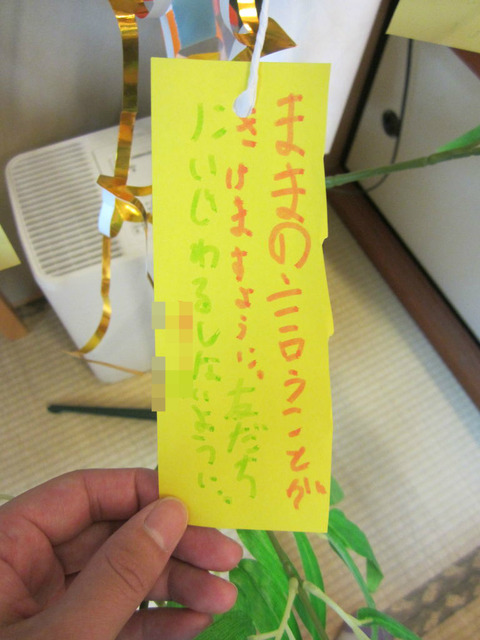 ままの言うことが
きけますように、友だち
にいじわるしないように、